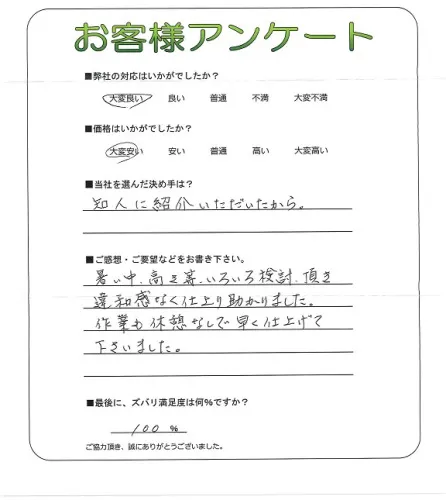 お客様アンケート
■弊社の対応はいかがでしたか?
大変良い 良い 普通 不満 大変不満
■価格はいかがでしたか?
大変安い 安い 普通 高い 大変高い
■当社を選んだ決め手は?
知人に紹介いただいたから。
■ご感想・ご要望などをお書き下さい。
暑い中、高さ等、いろいろ検討、頂き
違和感なく仕上り助かりました。
作業も休憩なしで早く仕上げて
下さいました。
■最後に、ズバリ満足度は何%ですか?
100 %
ご協力頂き、誠にありがとうございました。